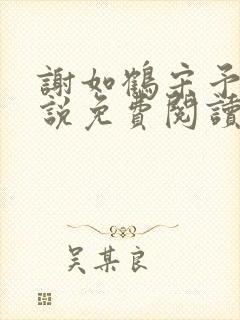 謝如鶴宋予
說免費閱讀
吴某良